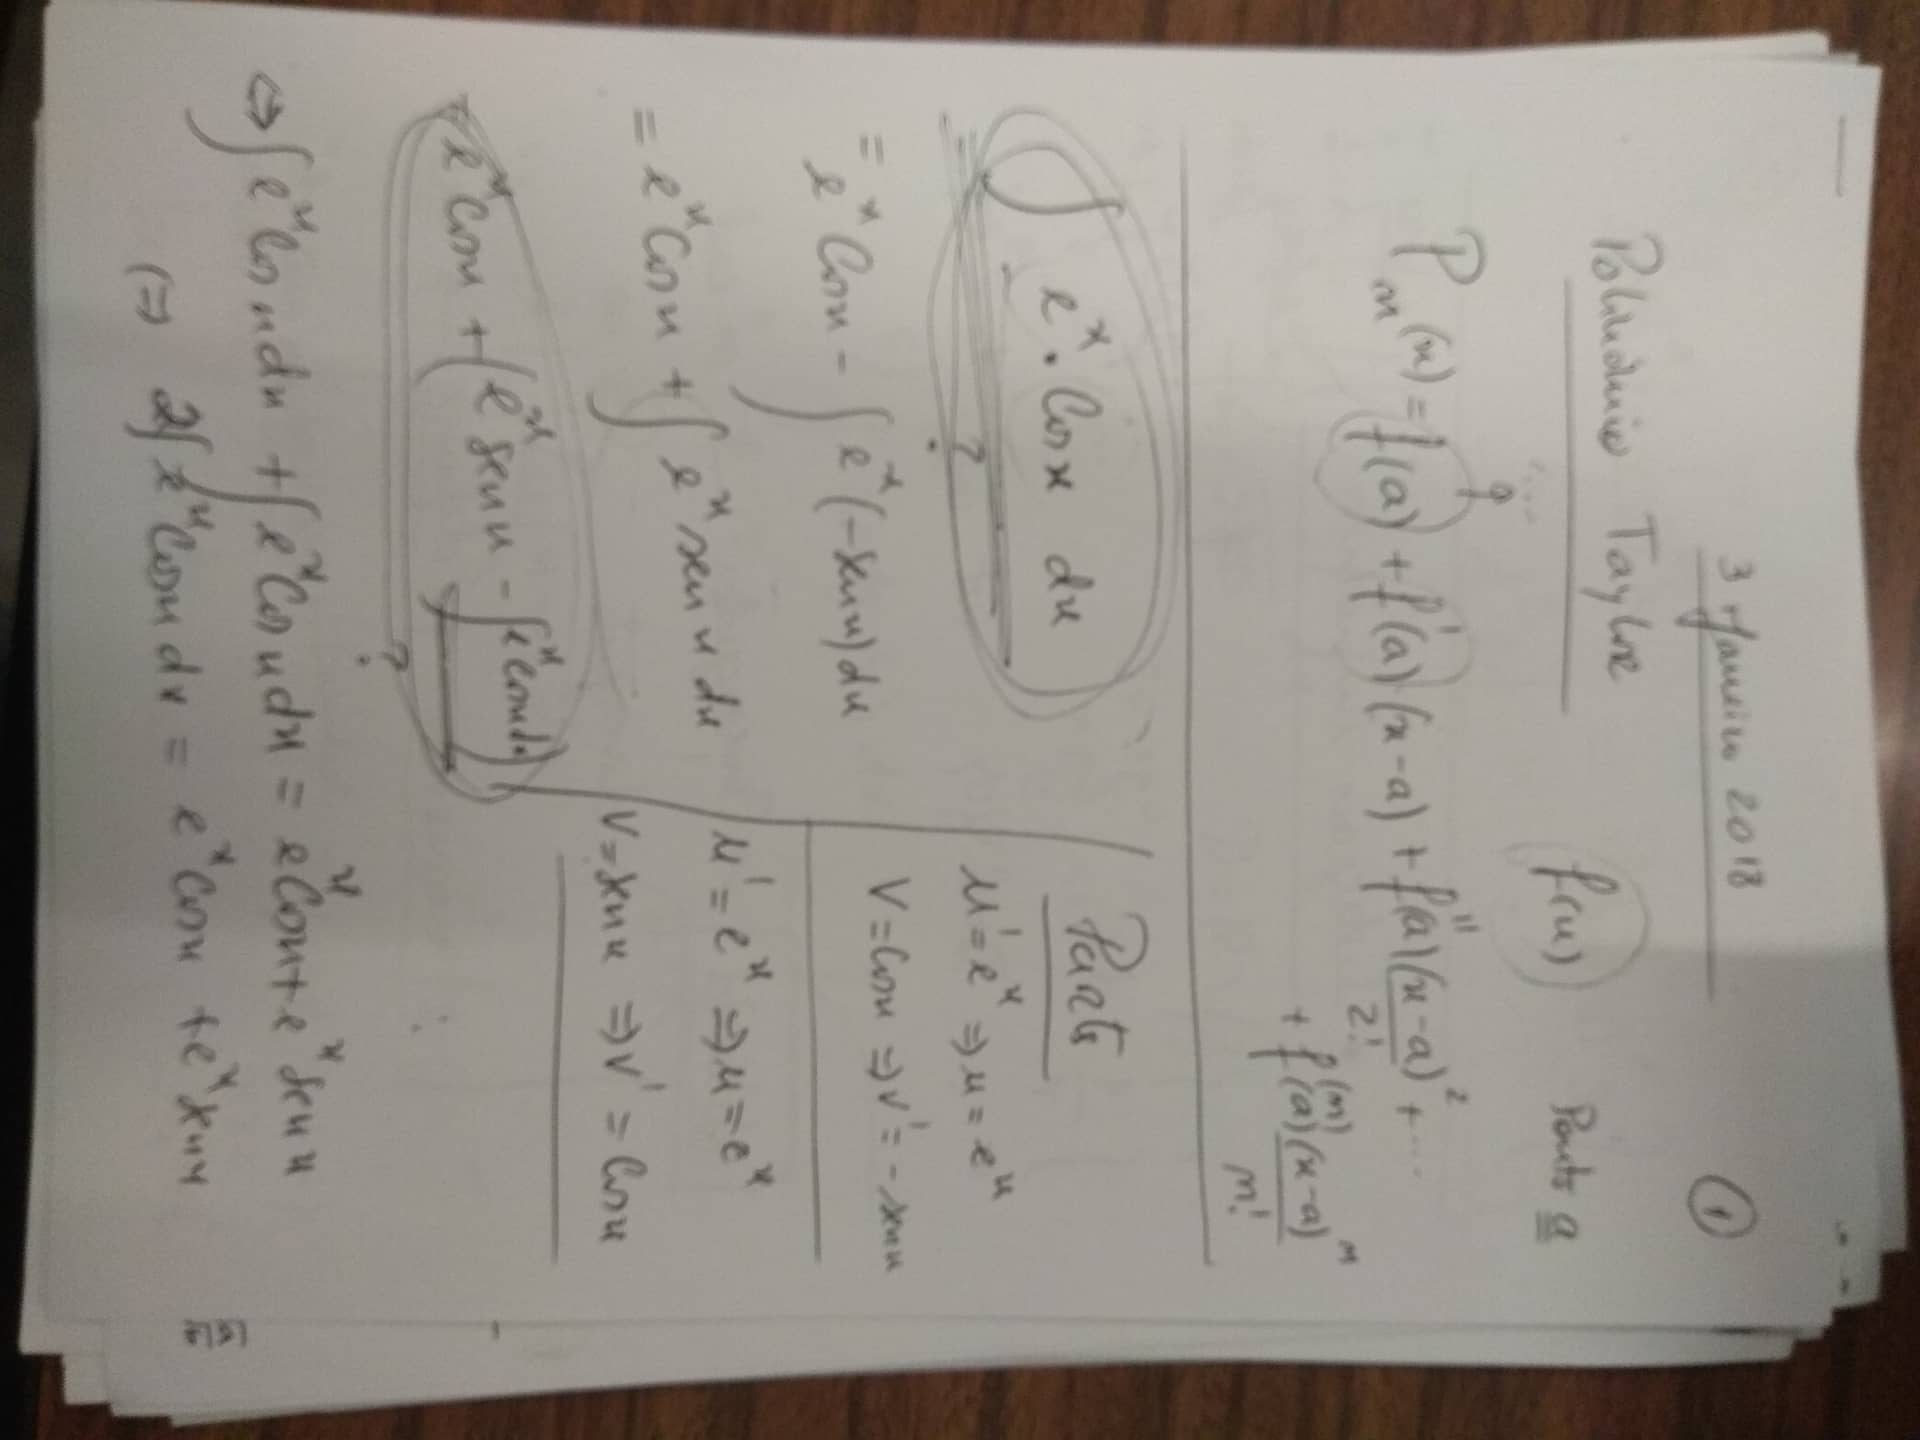 3 Janeiro 2018
①
Polinómio Taylor f(x) Ponto a
Pn(x) = f(a) + f'(a)(x-a) + f''(a)(x-a)²/2! + ....
+ f⁽ⁿ⁾(a)(x-a)ⁿ/n!
∫ eˣ . Cos x dx
?
= eˣ Cos x - ∫ eˣ (-sen x) dx
= eˣ Cos x + ∫ eˣ sen x dx
= eˣ Cos x + (eˣ sen x - ∫ eˣ Cos x dx)
?
Parts
u' = eˣ ⇒ u = eˣ
V = Cos x ⇒ V' = - sen x
u' = eˣ ⇒ u = eˣ
V = sen x ⇒ V' = Cos x
⇔ ∫ eˣ Cos x dx + ∫ eˣ Cos x dx = eˣ Cos x + eˣ sen x
⇔ 2∫ eˣ Cos x dx = eˣ Cos x + eˣ sen x